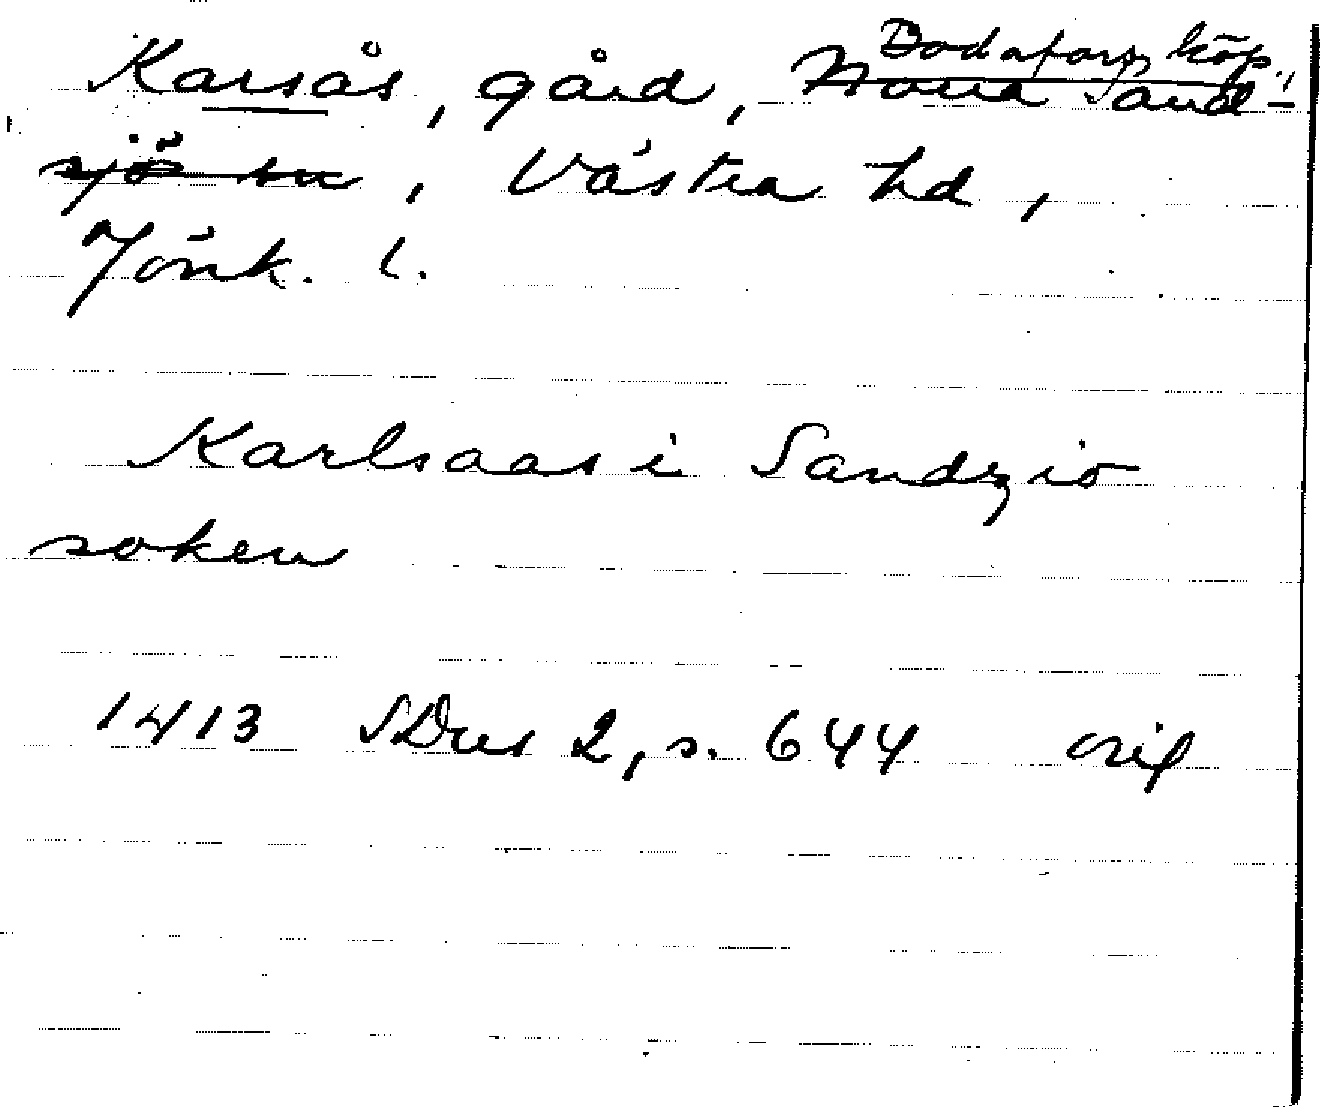 Bodafors köp.
Karsås, gård, Norra Sand-
sjö sn, Västra hd,
Jönk. l.
Karlsaas i Sandzio
soken
1413 SDns 2, s. 644 orig